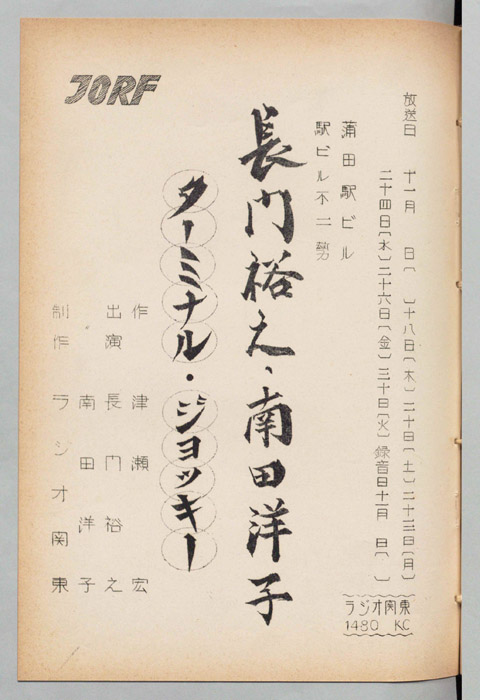 放送日 十一月 日〔 〕十八日〔木〕二十日〔土〕二十二日〔月〕
二十四日〔水〕二十六日〔金〕三十日〔火〕録音日十一月 日〔 〕
ラジオ関東
1480 KC
蒲田駅ビル
駅ビル不二勢
長門裕之、南田洋子
ターミナル・ジョッキー
JORF
作 津瀬宏
出演 長門裕之
南田洋子
制作 ラジオ関東